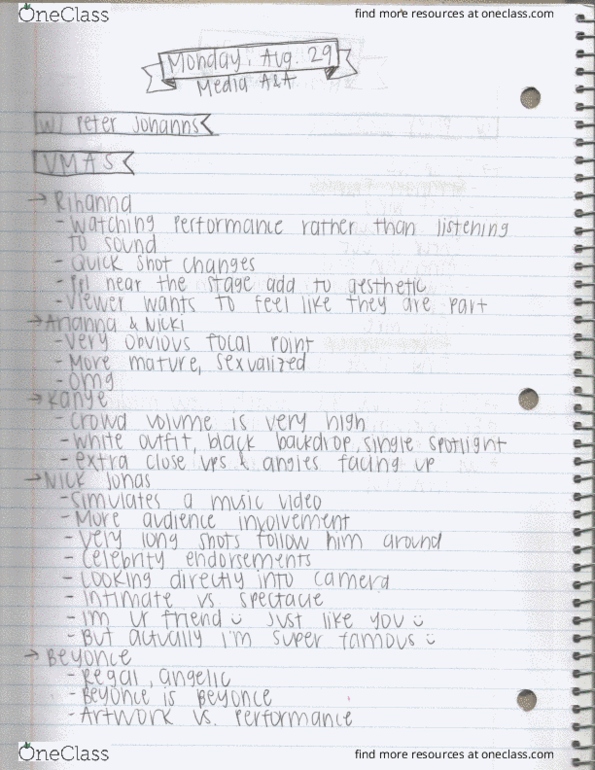 OneClass find more resources at oneclass.com
Monday, Aug. 29
Media A&A
w/ Peter Johanns
VMAS
→ Rihanna
- watching performance rather than listening
to sound
- Quick shot changes
- ppl near the stage add to aesthetic
- Viewer wants to feel like they are part
→ Arianna & Nicki
- Very obvious focal point
- More mature, sexualized
- omg
→ Kanye
- Crowd volume is very high
- White outfit, black backdrop, single spotlight
- extra close ups & angles facing up
→ Nick Jonas
- Simulates a music video
- More audience involvement
- Very long shots follow him around
- Celebrity endorsements
- Looking directly into camera
- Intimate vs spectacle
- I'm ur friend ☺ Just like you ☺
- But actually I'm super famous ☺
→ Beyonce
- Regal, angelic
- Beyonce is Beyonce
- Artwork vs. Performance
OneClass find more resources at oneclass.com